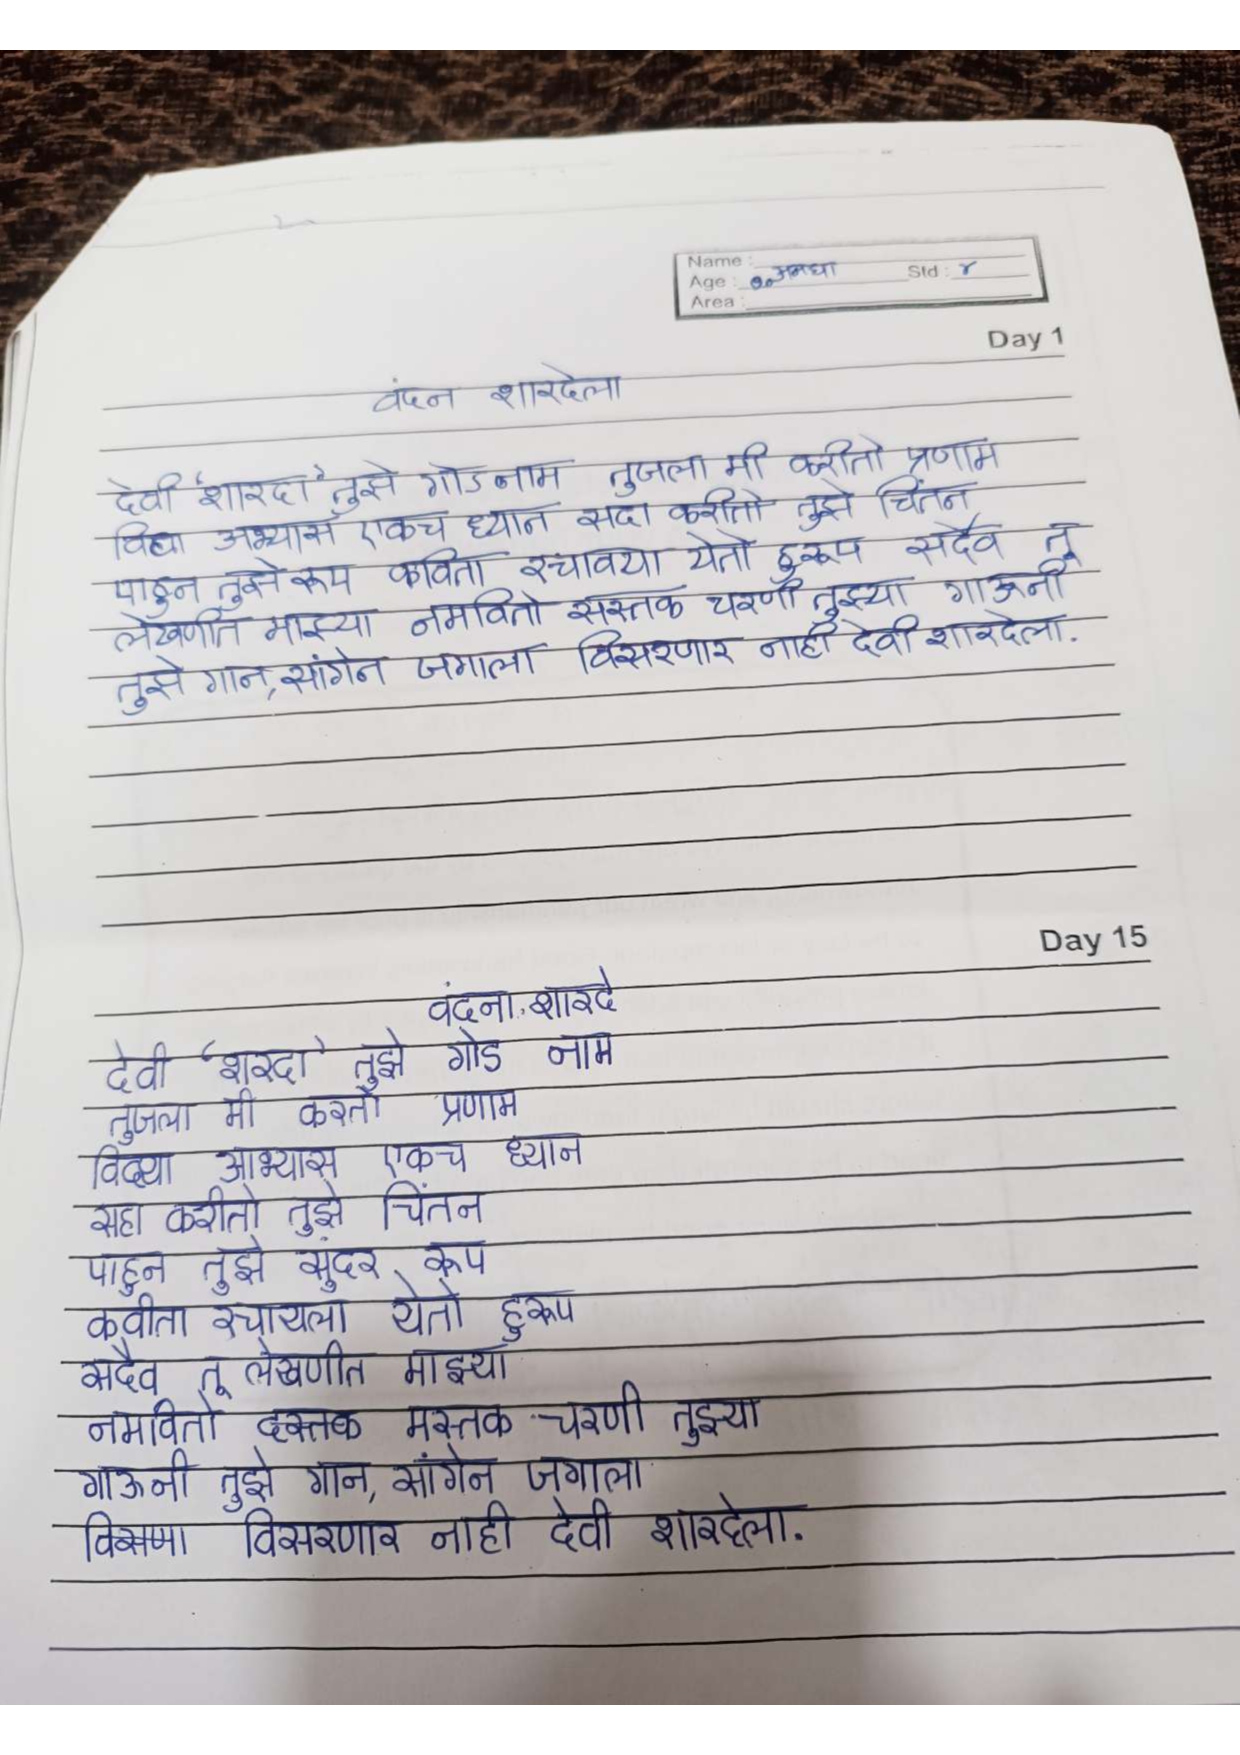 Name :
Age : १० अनघा Std : ४
Area :
Day 1
वंदन शारदेला
देवी 'शारदा' तुझे गोड नाम तुजला मी करीतो प्रणाम
विद्या अभ्यास एकच ध्यान सदा करीतो तुझे चिंतन
पाहुन तुझे रूप कविता रचावया येतो हुरूप सदैव तू
लेखणीत माझ्या नमवितो मस्तक चरणी तुझ्या गाऊनी
तुझे गान, सांगेन जगाला विसरणार नाही देवी शारदेला.
Day 15
वंदना शारदे
देवी 'शरदा' तुझे गोड नाम
तुजला मी करतो प्रणाम
विद्या आभ्यास एकच ध्यान
सहा करीतो तुझे चिंतन
पाहुन तुझे सुंदर रूप
कवीता रचायला येतो हुरूप
सदैव तू लेखणीत माझ्या
नमवितो मस्तक चरणी तुझ्या
गाऊनी तुझे गान, सांगेन जगाला
विसरणार नाही देवी शारदेला.